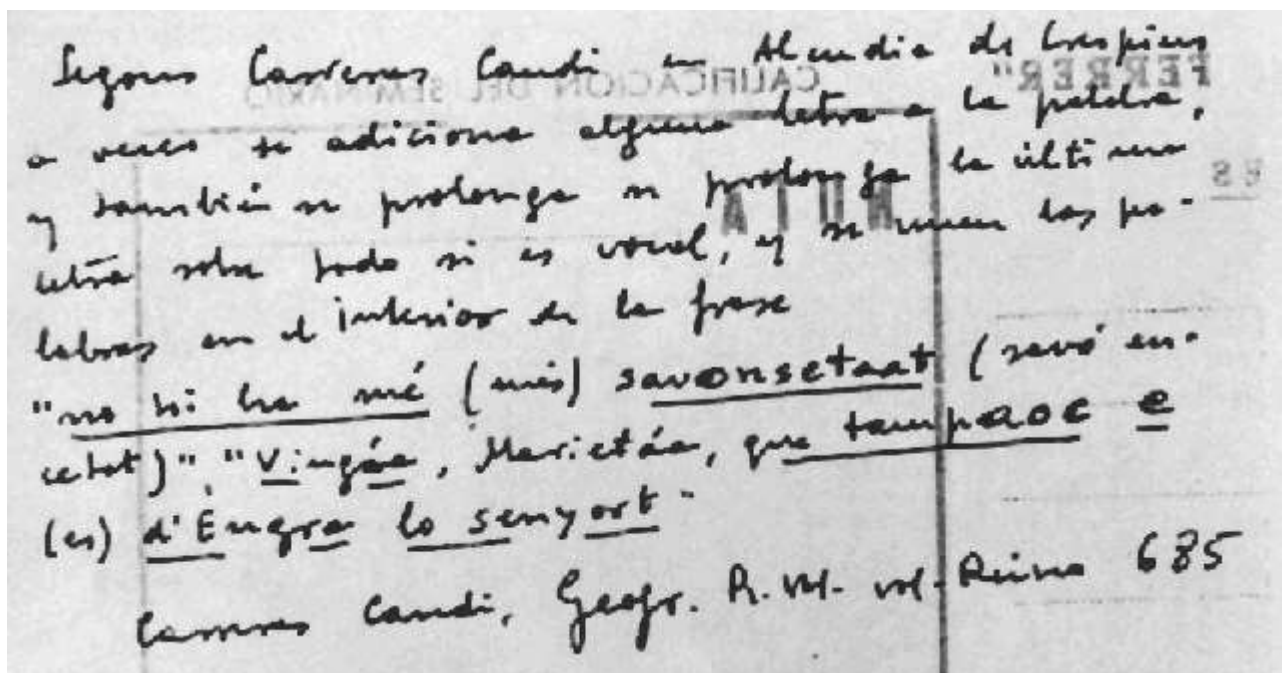 Segons Carreras Candi en Alcudia de Crespins
a veces se adiciona alguna letra a la palabra,
y también se prolonga se prolonga la última
letra sobre todo si es vocal, y se unen las pa-
labras en el interior de la frase
"no hi ha mé (més) savonsetaat (savó en-
cetat)", "Vingáa, Marietáa, que tampaoc e
(es) d'Engra lo senyort"
Carreras Candi, Geogr. R. Val. vol. Reino 685
CALIFICACION DEL SEMINARIO
FERRER"